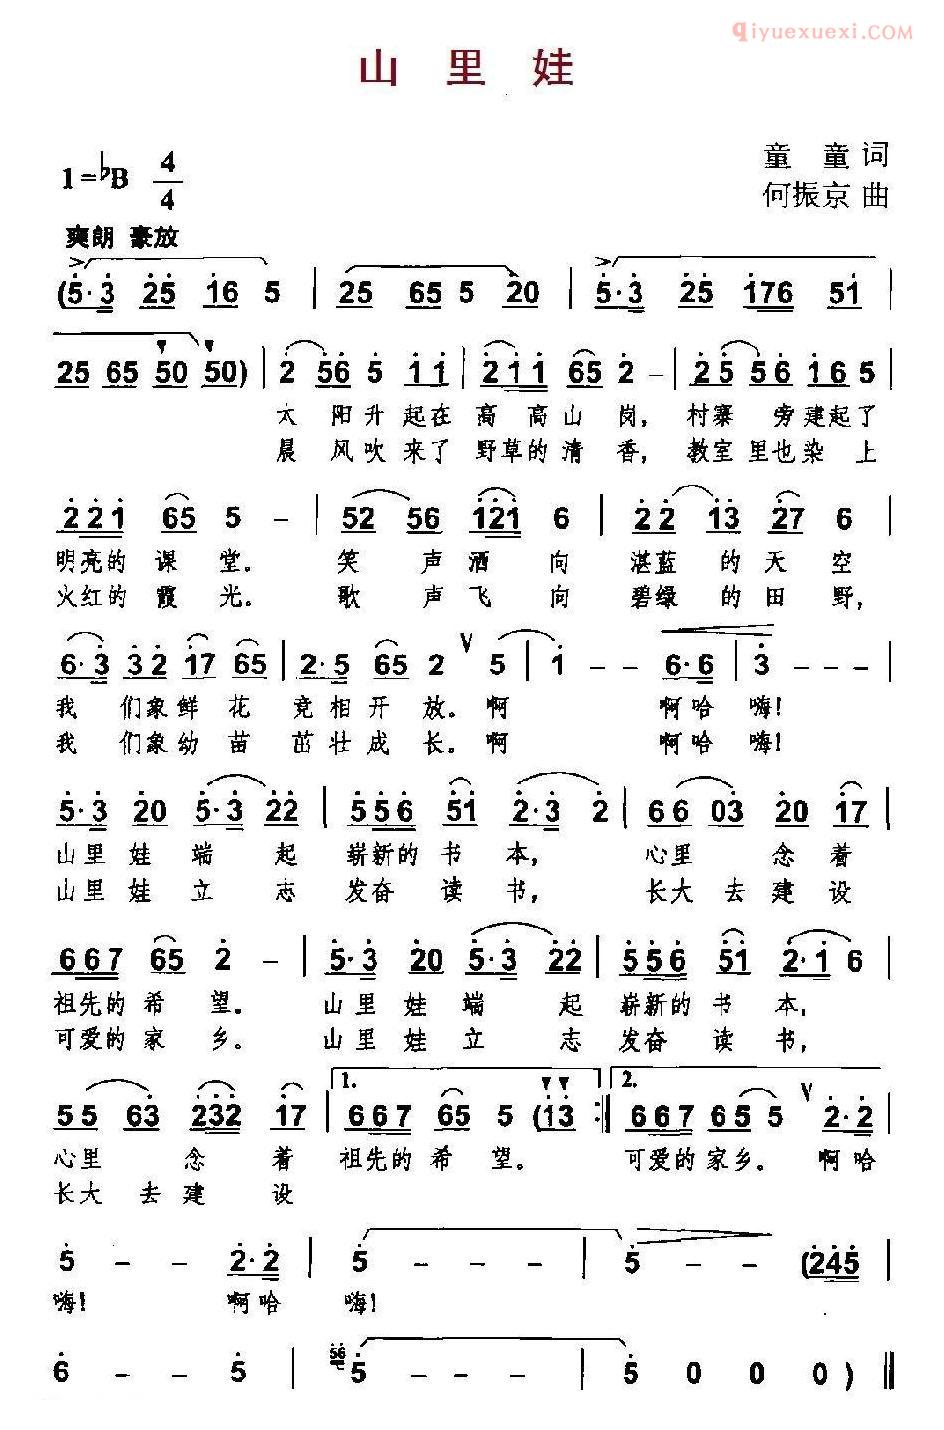 QIYUEXUEXI.COM
山 里 娃
童 童 词
何振京 曲
1=♭B 4/4
爽朗 豪放
(5·3 25 16 5 | 25 65 5 20 | 5·3 25 176 51 |
25 65 50 50) | 2 56 5 11 | 211 65 2 – | 25 56 165 |
太 阳升 起在 高 高山 岗, 村寨 旁建起了
晨 风吹 来了 野草的 清 香, 教室里也染上
221 65 5 – | 52 56 121 6 | 22 13 27 6 |
明亮的 课 堂。 笑 声 洒 向 湛蓝 的 天 空
火红的 霞 光。 歌 声 飞 向 碧绿 的 田 野,
6·3 32 17 65 | 2·5 65 2 V 5 | 1 – – 6·6 | 3 – –
我 们象鲜 花 竞 相开 放。啊 啊哈 嗨!
我 们象幼 苗 茁 壮成 长。啊 啊哈 嗨!
5·3 20 5·3 22 | 556 51 2·3 2 | 66 03 20 17 |
山里 娃 端 起 崭新的 书 本, 心里 念 着
山里 娃 立 志 发奋 读 书, 长大 去 建 设
667 65 2 – | 5·3 20 5·3 22 | 556 51 2·1 6 |
祖先的 希 望。 山里 娃 端 起 崭新的 书 本,
可爱的 家 乡。 山里 娃 立 志 发奋 读 书,
1. 2.
55 63 232 17 | 667 65 5 (13 :| 667 65 5 V 2·2 |
心里 念 着 祖先的 希 望。 可爱的 家乡。 啊哈
长大 去 建 设
5 – – 2·2 | 5 – – – | 5 – – (245 |
嗨! 啊哈 嗨!
6 – – 5 | 56 5 – – – | 5 0 0 0) ‖